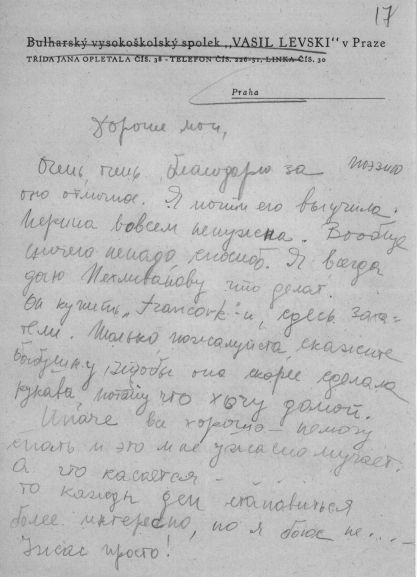 17
Bulharský vysokoškolský spolek „VASIL LEVSKI“ v Praze
TŘÍDA JANA OPLETALA ČÍS. 38 - TELEFON ČÍS. 226-51, LINKA ČÍS. 30
Praha
Хорошие мои,
Очень, очень благодарю за поэзию
оно отлично. Я почти его выучила.
Перина вовсем ненужна. Вообще
ничего ненадо. Я всегда
даю что делат.
Он купить „ “ и, здесь
Только пожалуйста, скажите
чтобы она скорее сделала
рукава, потому что хочу домой.
Иначе все хорошо — немогу
спать и это мне ужасно мучает.
А что касается -
то кажды ден становиться
более интересно, но я боюс не...-
Ужас просто!